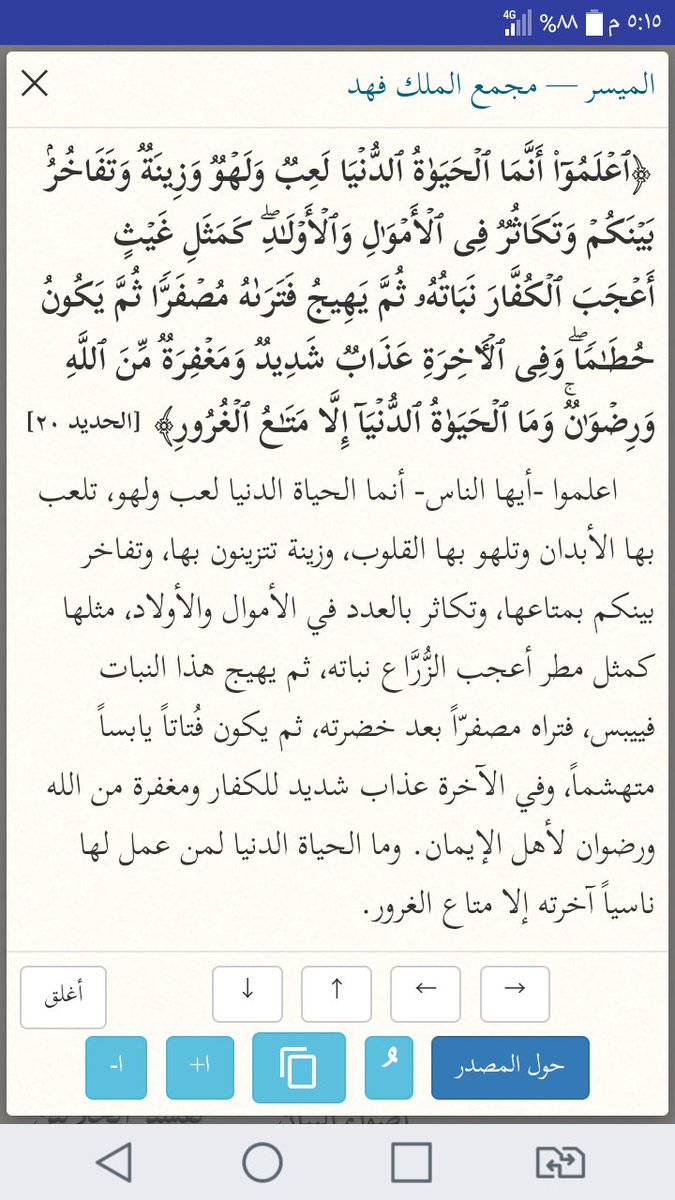 ٥:١٥ م ٨٨% 4G
الميسر — مجمع الملك فهد
﴿ٱعۡلَمُوٓاْ أَنَّمَا ٱلۡحَيَوٰةُ ٱلدُّنۡيَا لَعِبٞ وَلَهۡوٞ وَزِينَةٞ وَتَفَاخُرُۢ
بَيۡنَكُمۡ وَتَكَاثُرٞ فِي ٱلۡأَمۡوَٰلِ وَٱلۡأَوۡلَٰدِۖ كَمَثَلِ غَيۡثٍ
أَعۡجَبَ ٱلۡكُفَّارَ نَبَاتُهُۥ ثُمَّ يَهِيجُ فَتَرَىٰهُ مُصۡفَرّٗا ثُمَّ يَكُونُ
حُطَٰمٗاۖ وَفِي ٱلۡأٓخِرَةِ عَذَابٞ شَدِيدٞ وَمَغۡفِرَةٞ مِّنَ ٱللَّهِ
وَرِضۡوَٰنٞۚ وَمَا ٱلۡحَيَوٰةُ ٱلدُّنۡيَآ إِلَّا مَتَٰعُ ٱلۡغُرُورِ﴾ [الحديد ٢٠]
اعلموا -أيها الناس- أنما الحياة الدنيا لعب ولهو، تلعب
بها الأبدان وتلهو بها القلوب، وزينة تتزينون بها، وتفاخر
بينكم بمتاعها، وتكاثر بالعدد في الأموال والأولاد، مثلها
كمثل مطر أعجب الزُّرَّاع نباته، ثم يهيج هذا النبات
فييبس، فتراه مصفرّاً بعد خضرته، ثم يكون فُتاتاً يابساً
متهشماً، وفي الآخرة عذاب شديد للكفار ومغفرة من الله
ورضوان لأهل الإيمان. وما الحياة الدنيا لمن عمل لها
ناسياً آخرته إلا متاع الغرور.
→ ← ↑ ↓ أغلق
حول المصدر ا+ ا-